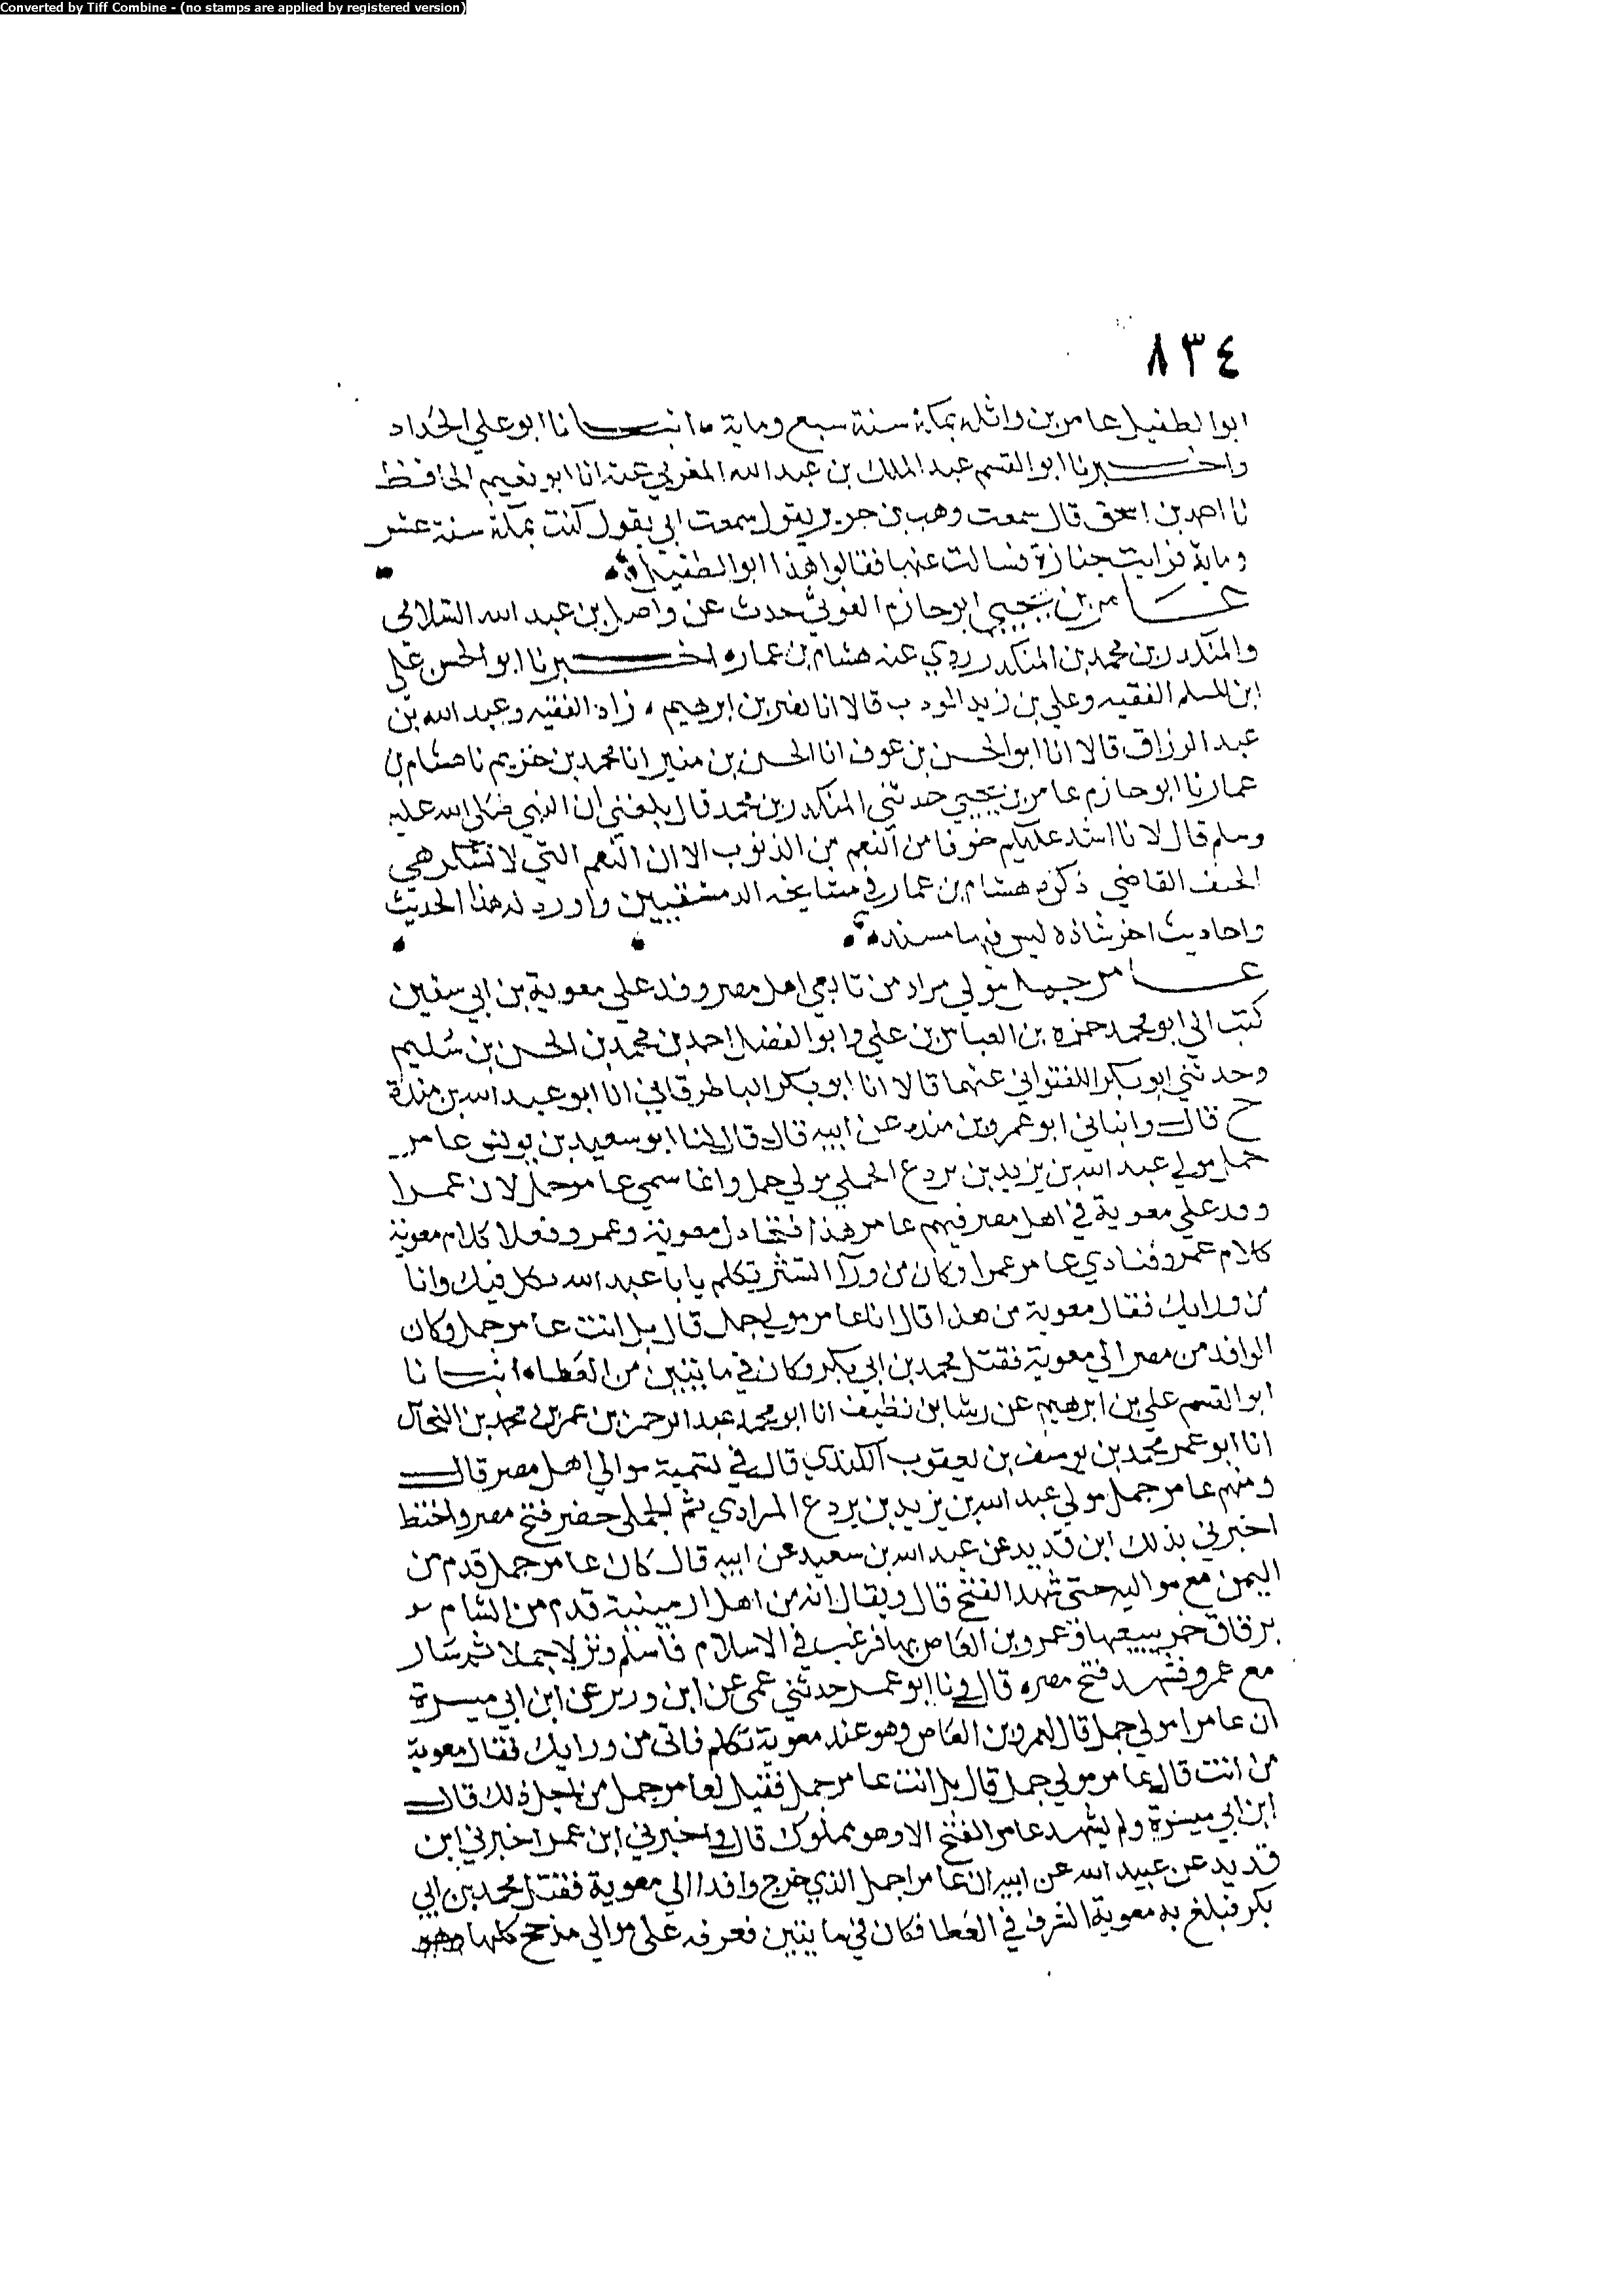 Converted by Tiff Combine - (no stamps are applied by registered version)
٨٣٤
ابو الطفيل عامر بن واثله بمكة سنة سبع وماية انبـانا ابو علي الحداد
واخبرنا ابو القسم عبد الملك بن عبد الله المغربي عنه انا ابو نعيم الحافظ
نا احمد بن اسحق قال سمعت وهب بن جرير يقول سمعت ابي يقول كنت بمكة سنة عشر
وماية فرايت جنازة فسالت عنها فقالوا هذا ابو الطفيل
عامر بن يحيى ابو حازم الغوثي حدث عن واصل بن عبد الله السلامي
والمنكدر بن محمد بن المنكدر روي عنه هشام بن عمار اخبرنا ابو الحسن علي
ابن المسلم الفقيه وعلي بن زيد المودب قالا انا نصر بن ابرهيم زاد الفقيه وعبد الله بن
عبد الرزاق قالا انا ابو الحسن بن عوف انا الحسن بن منير انا محمد بن خزيم نا هشام بن
عمار نا ابو حازم عامر بن يحيى حدثني المنكدر بن محمد قال بلغني ان النبي صلى الله عليه
وسلم قال لانا اشد عليكم خوفا من النعم من الذنوب الا ان النعم التي لا تشكر هي
الحتف القاضي ذكره هشام بن عمار في مشايخه الدمشقيين واورد له هذا الحديث
واحاديث اخر شاذه ليس فيها مسند
عامر جمل مولي مراد من تابعي اهل مصر وفد علي معوية بن ابي سفين
كتب الي ابو محمد حمزه بن العباس بن علي وابو الفضل احمد بن محمد بن الحسن بن سليم
وحدثني ابو بكر اللفتواني عنهما قالا انا ابو بكر الباطرقاني انا ابو عبد الله بن مندة
ح قال وانباني ابو عمرو بن منده عن ابيه قال قال لنا ابو سعيد بن يونس عامر
جمل مولي عبد الله بن يزيد بن بردع الجملي مولي جمل وانما سمي عامر جمل لان عمرا
وفد علي معوية في اهل مصر فيهم عامر هذا فتجادل معوية وعمرو فعلا كلام معوية
كلام عمرو فنادي عامر عمرا وكان من ورآ الستر تكلم يابا عبد الله بكل فيك وانا
من ورايك فقال معوية من هذا قال انا عامر مولي جمل قال بل انت عامر جمل وكان
الوافد من مصر الي معوية فقتل محمد بن ابي بكر وكان في مايتين من العطا انبـانا
ابو القسم علي بن ابرهيم عن رشا بن نظيف انا ابو محمد عبد الرحمن بن عمر بن محمد بن النحاس
انا ابو عمر محمد بن يوسف بن يعقوب الكندي قال في تسمية موالي اهل مصر قال
ومنهم عامر جمل مولي عبد الله بن يزيد بن بردع المرادي ثم الجملي حضر فتح مصر واختط
اخبرني بذلك ابن قديد عن عبيد الله بن سعيد عن ابيه قال كان عامر جمل قدم من
اليمن مع مواليه حتى شهد الفتح قال ويقال انه من اهل ارمينية قدم من الشام
بزقاق خمر يبيعها فمر عمرو بن العاص بها فرغب في الاسلام فاسلم ونزل جملا ثم سار
مع عمرو فشهد فتح مصر قال ونا ابو عمر حدثني عمى عن ابن وزير عن ابن ابي ميسرة
ان عامرا مولي جمل قال لعمرو بن العاص وهو عند معوية تكلم فاني من ورايك فقال معوية
من انت قال عامر مولي جمل قال بل انت عامر جمل فقيل له عامر جمل من اجل ذلك قال
ابن ابي ميسرة ولم يشهد عامر الفتح الا وهو مملوك قال واخبرني ابن عمر اخبرني ابن
قديد عن عبيد الله عن ابيه ان عامرا جمل الذي خرج وافدا الي معوية فقتل محمد بن ابي
بكر فبلغ به معوية الشرف في العطا فكان في مايتين فعرفه على موالي مذحج كلها